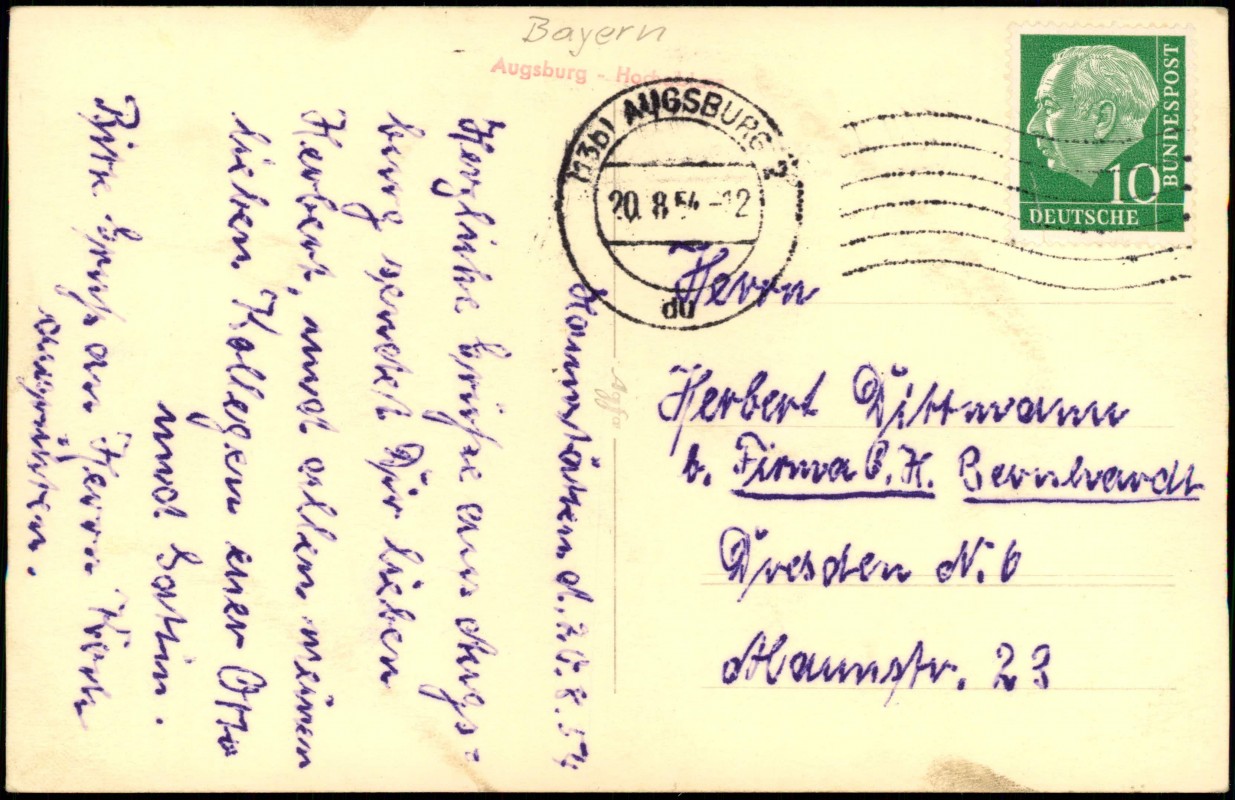 Bayern
Augsburg - Hoch
(13b) AUGSBURG 2
20.8.54-12
du
BUNDESPOST
10
DEUTSCHE
d. 20.8.54
Herzliche Grüße aus Augs-
burg sendet Dir lieben
Herbert, und allen meinen
lieben Kollegen euer Otto
und Gattin.
Bitte Gruß an Herrn
ausrichten.
Agfa
Herrn
Herbert Dittmann
b. Firma C. H. Bernhardt
Dresden N. 6
23